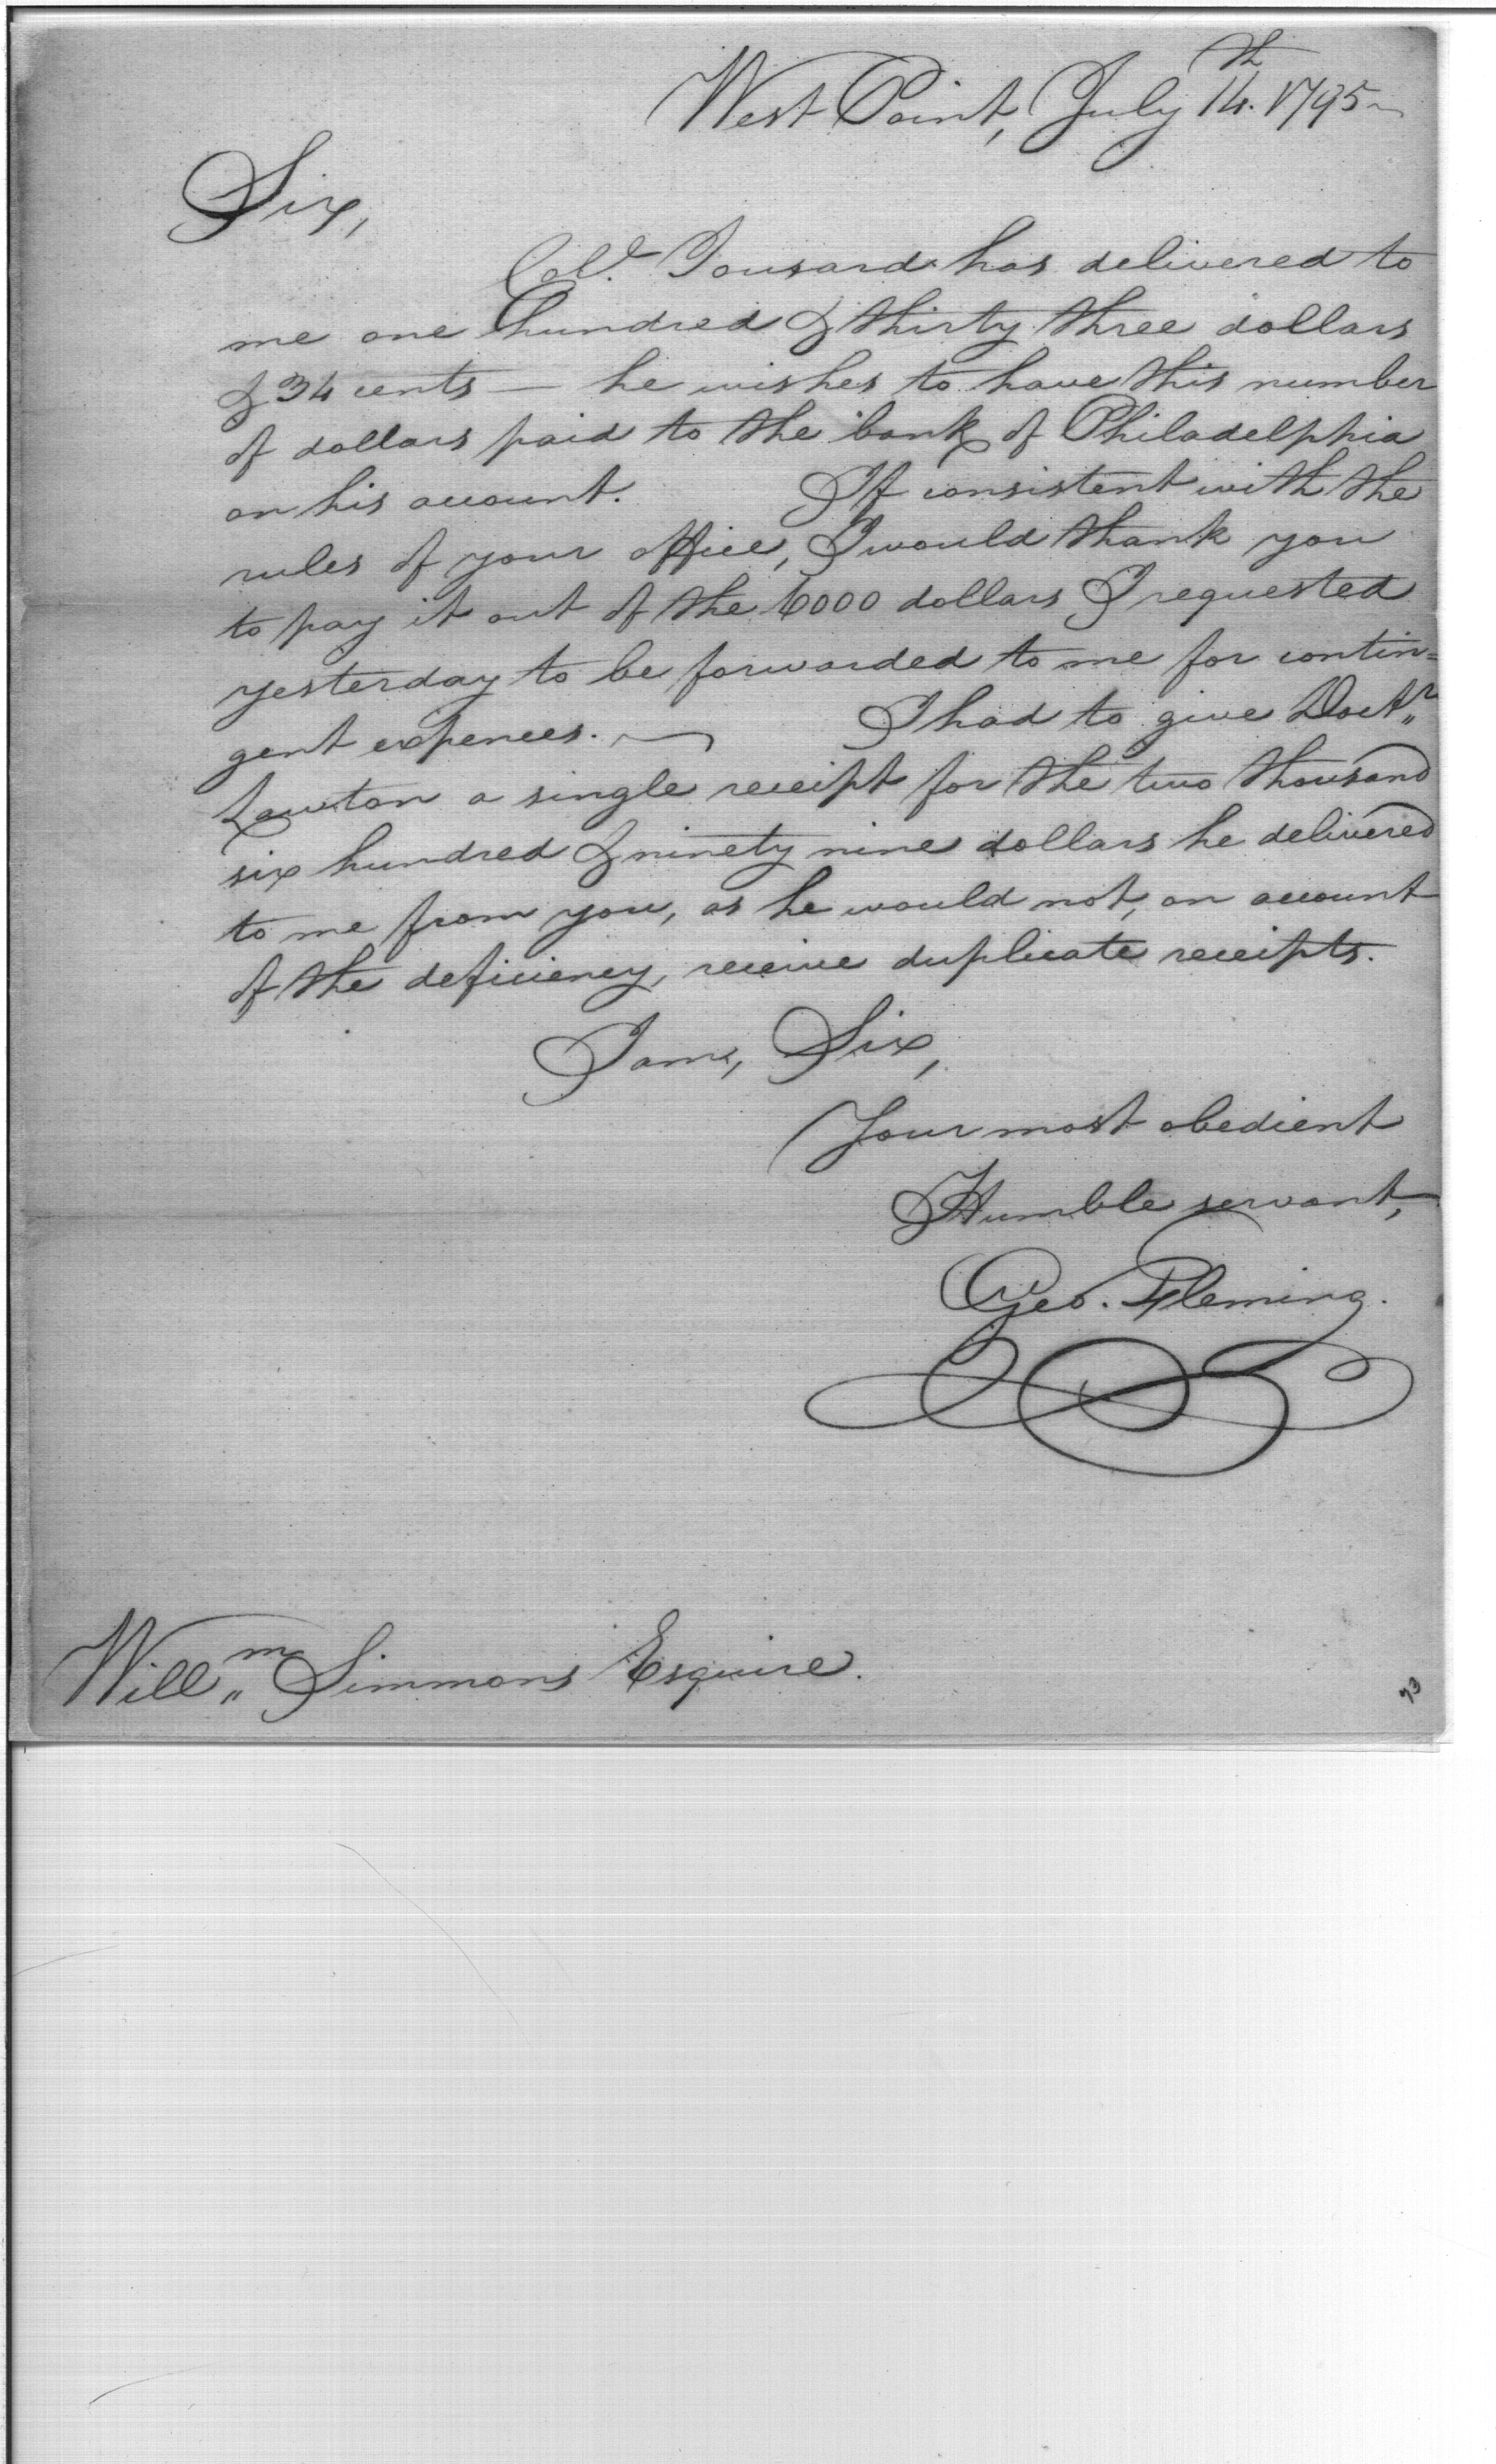 West Point, July 14th. 1795~
Sir,
Colo. Tousard has delivered to
me one hundred & thirty three dollars
& 34 cents — he wishes to have this number
of dollars paid to the bank of Philadelphia
on his account. If consistent with the
rules of your office, I would thank you
to pay it out of the 6000 dollars I requested
yesterday to be forwarded to me for contin=
gent expences. ~ I had to give Doctr
Lawton a single receipt for the two thousand
six hundred & ninety nine dollars he delivered
to me from you, as he would not, on account
of the deficiency, receive duplicate receipts.
I am, Sir,
Your most obedient
Humble servant,
Geo. Fleming.
Willm Simmons Esquire.
73